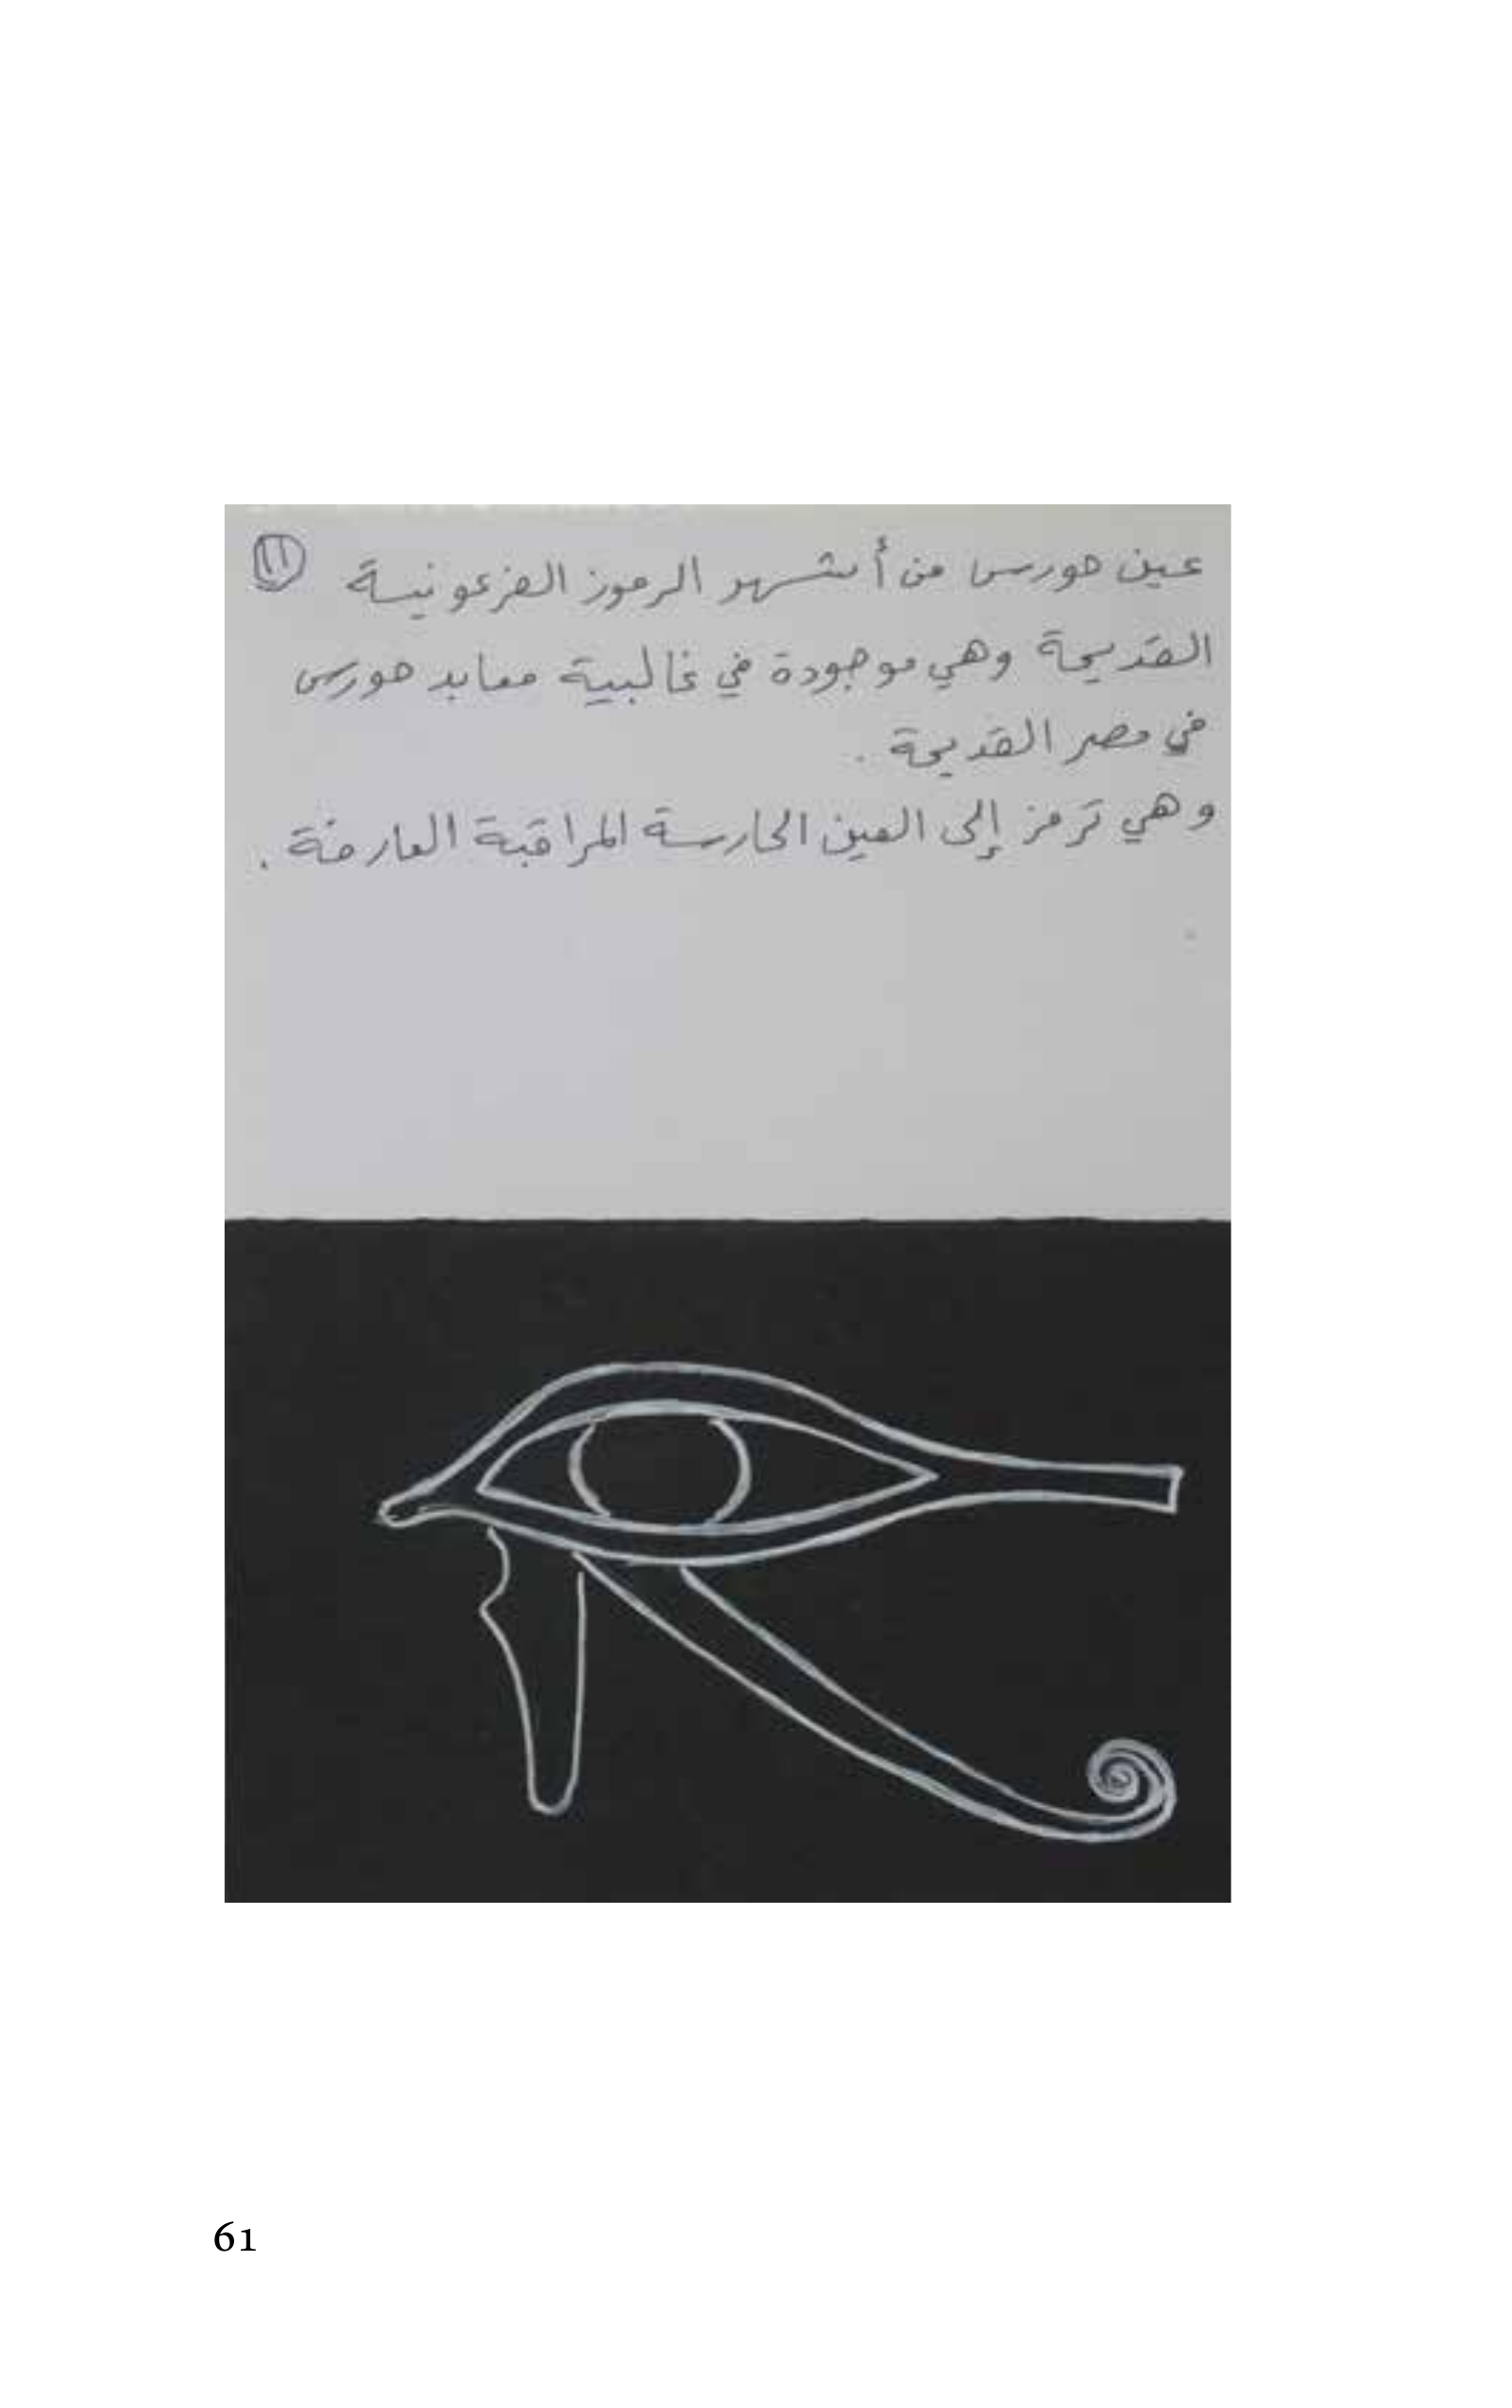 عين حورس من أشهر الرموز الفرعونية ⑪
القديمة وهي موجودة في غالبية معابد حورس
في مصر القديمة .
وهي ترمز إلى العين الحارسة المراقبة العارفة .
61